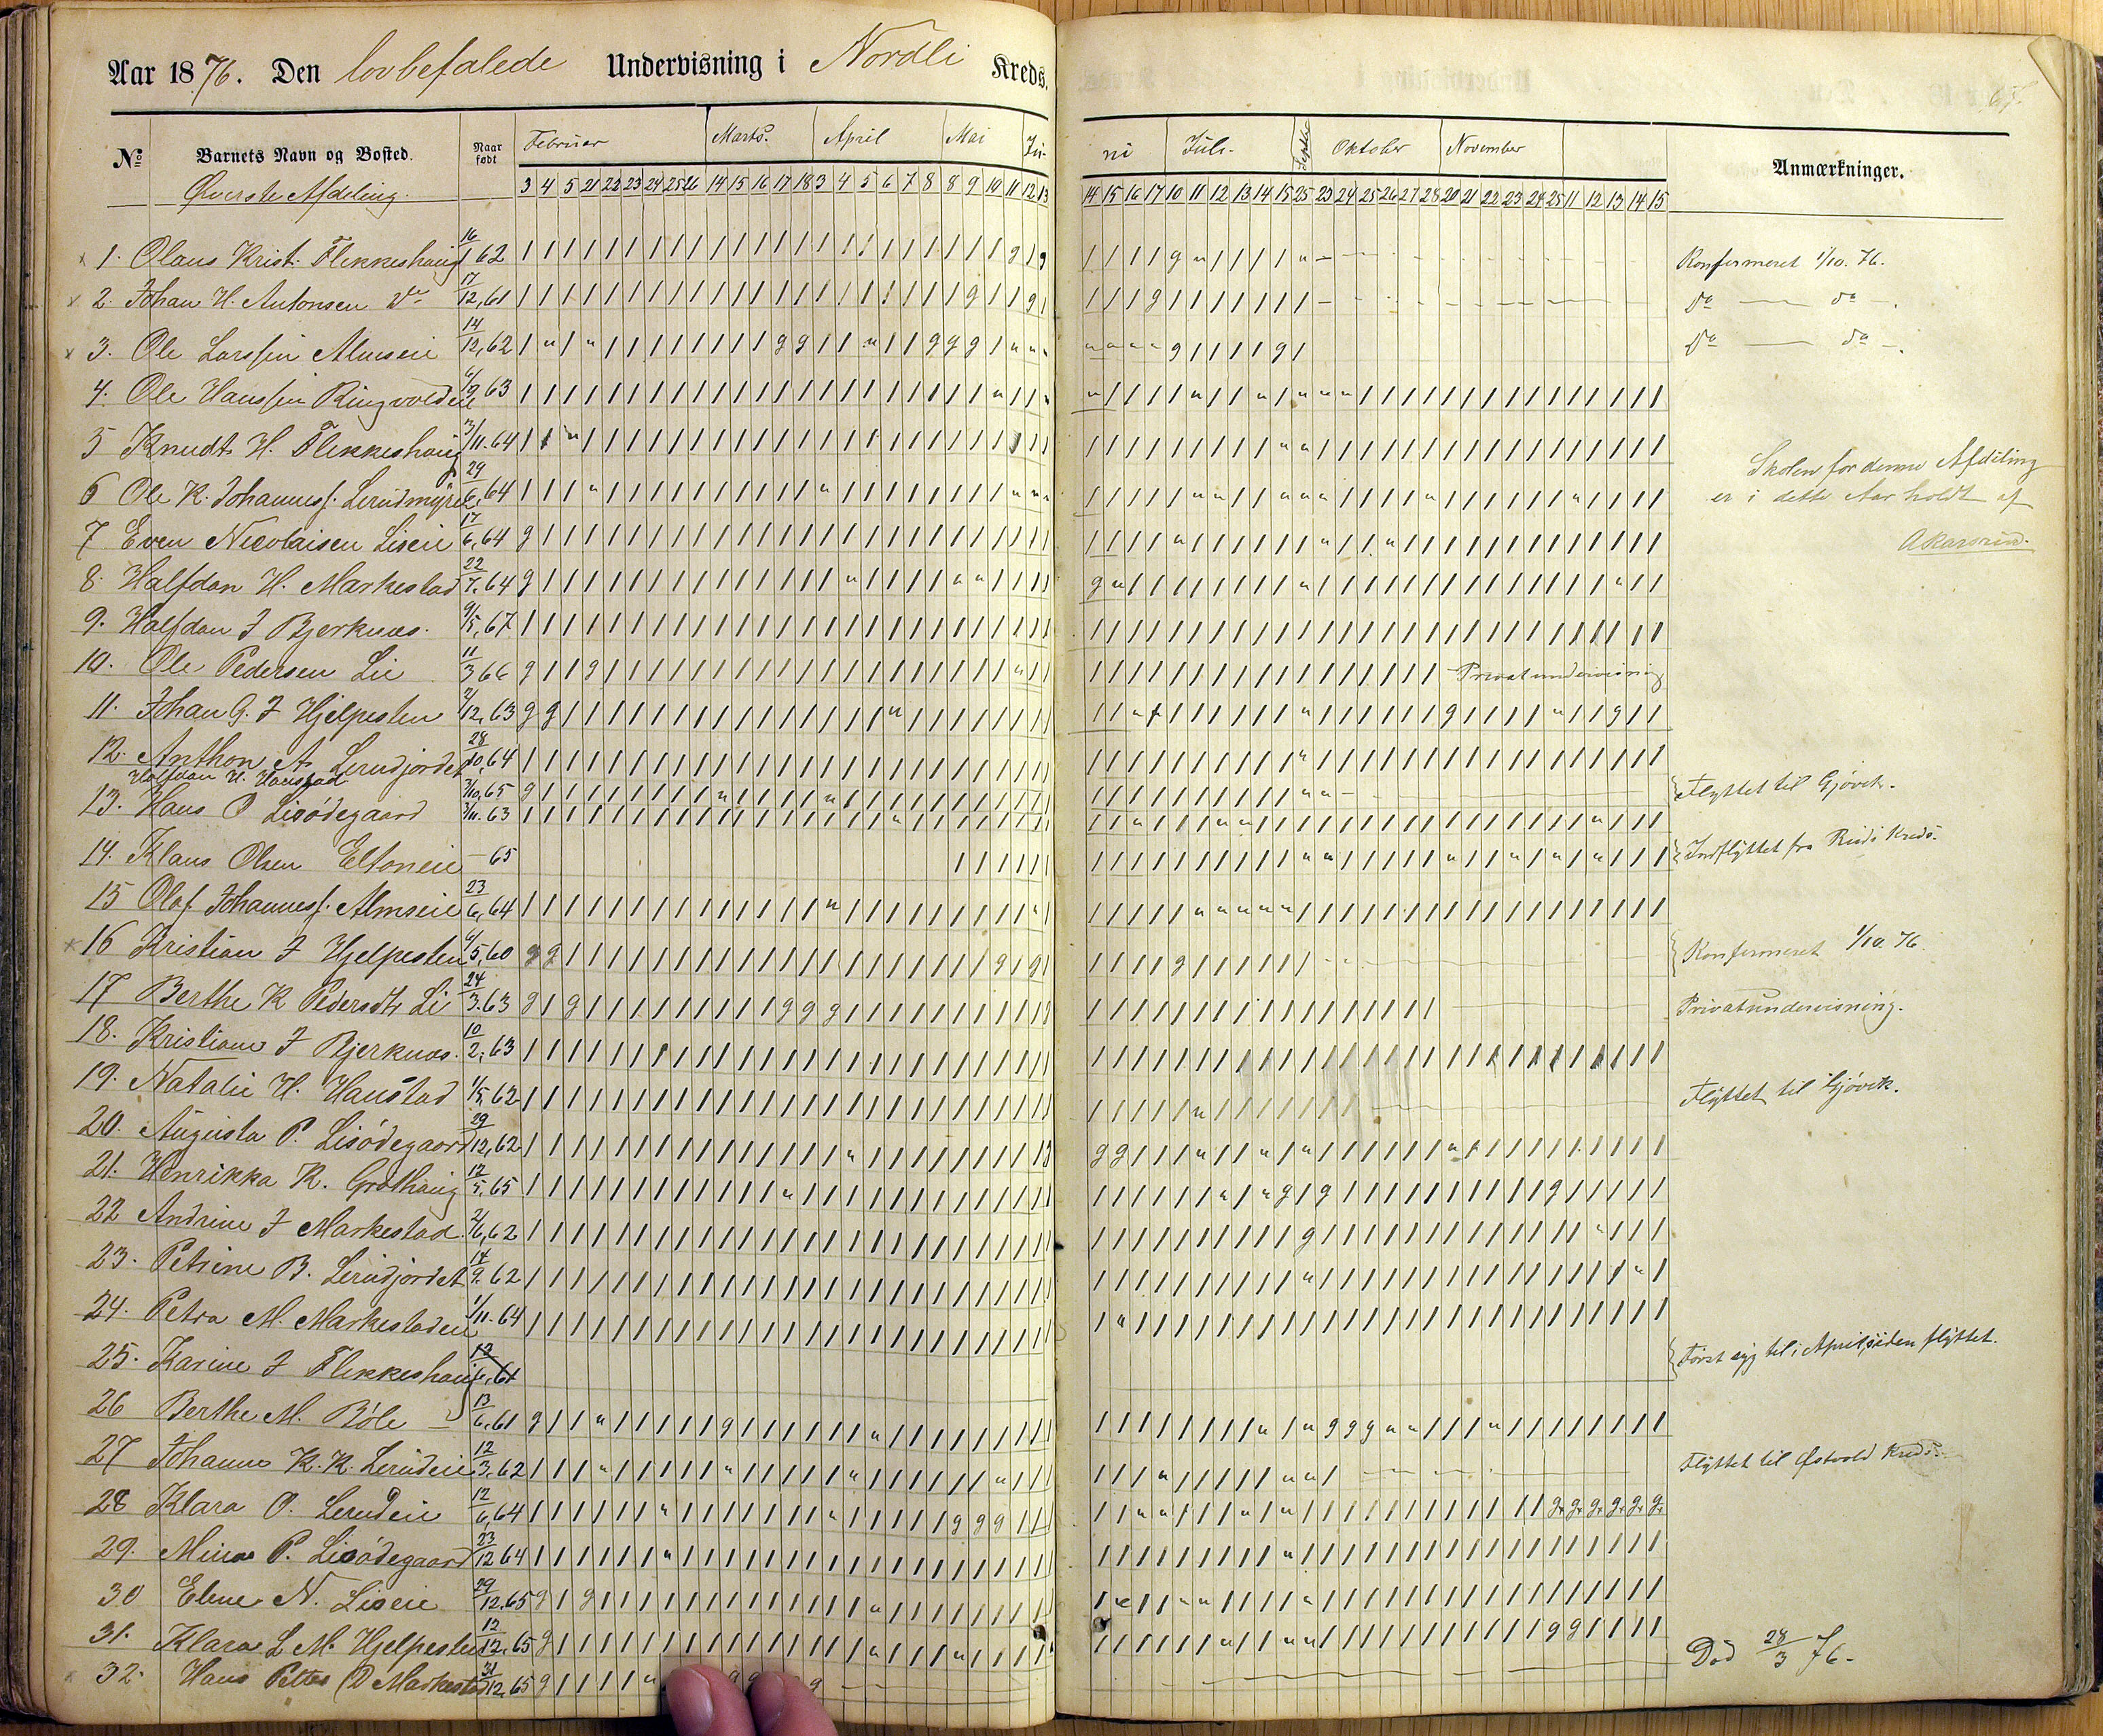 Aar 1876. Den lovbefalede Undervisning i Nordli Kreds.
No Barnets Navn og Bosted. Naar født Februar Marts. April Mai Ju-
Øverste Afdeling.
3 4 5 21 22 23 24 25 26 14 15 16 17 18 3 4 5 6 7 8 8 9 10 11 12 13
ni Juli- Septbr Oktober November Anmærkninger.
14 15 16 17 10 11 12 13 14 15 25 23 24 25 26 27 28 20 21 22 23 24 25 11 12 13 14 15
1. Olaus Krist. Flikkeshaug 16/1 62 Konfirmeret 1/10. 76.
2. Johan H. Antonsen do 17/12, 61 do — do —.
3. Ole Larssen Almseie 14/12, 62 do — do —.
4. Ole Hanssen Ringvoldeie 6/2 63
5 Knudt H. Flikkeshaug 3/11. 64
Skolen for denne Afdeling
6 Ole K. Johannesf. Lerudmyren 29/6, 64 er i dette Aar holdt af
7 Even Nicolaisen Liseie 17/6, 64
8. Halfdan H. Markestad 22/7. 64
9. Halfdan J Bjerknæs. 9/5, 67
10. Ole Pedersen Lie 11/3 66 Privatundervisning
11. Johan G. J Hjelpesten 2/12, 63
12. Anthon A Lerudjordet 28/10, 64
Halfdan H. Haustad 3/10, 65 Flyttet til Gjøvik.
13. Hans P Lisødegaard 3/11. 63
14. Klaus Olsen Eltoneie – 65 Indflyttet fra Kreds.
15 Olaf Johannesf. Almseie 23/6, 64
16 Kristian J Hjelpesten 6/5, 60 Konfirmeret 1/10. 76.
17 Berthe K Pedersdtr Li 24/3. 63 Privatundervisning.
18. Kristiane J Bjerknæs. 10/2, 63
19. Natalie H. Haustad 1/5, 62 Flyttet til Gjøvik.
20. Augusta P. Lisødegaard 29/12, 62
21. Henrikka K. Grøthaug 12/5. 65
22 Andrine J Markestad 2/6, 62
23. Petrine B. Lerudjordet 14/9. 62
24. Petra M. Markestadeie 1/11. 64
25. Karine J Flikkeshaug 12/6, 61 Først syg til i April, siden flyttet.
26 Berthe M. Bøle – 13/6, 61
27 Johanne K. K. Lerudeie 12/3, 62 Flyttet til Østvold Kreds.
28 Klara O. Lerudeie 12/6, 64
29. Mina P. Lisødegaard 23/12 64
30 Elene N. Liseie 29/12. 65
31. Klara L M. Hjelpesten 12/12, 65
32. Hans Petter D Markestad 31/12, 65 Død 28/3 76.